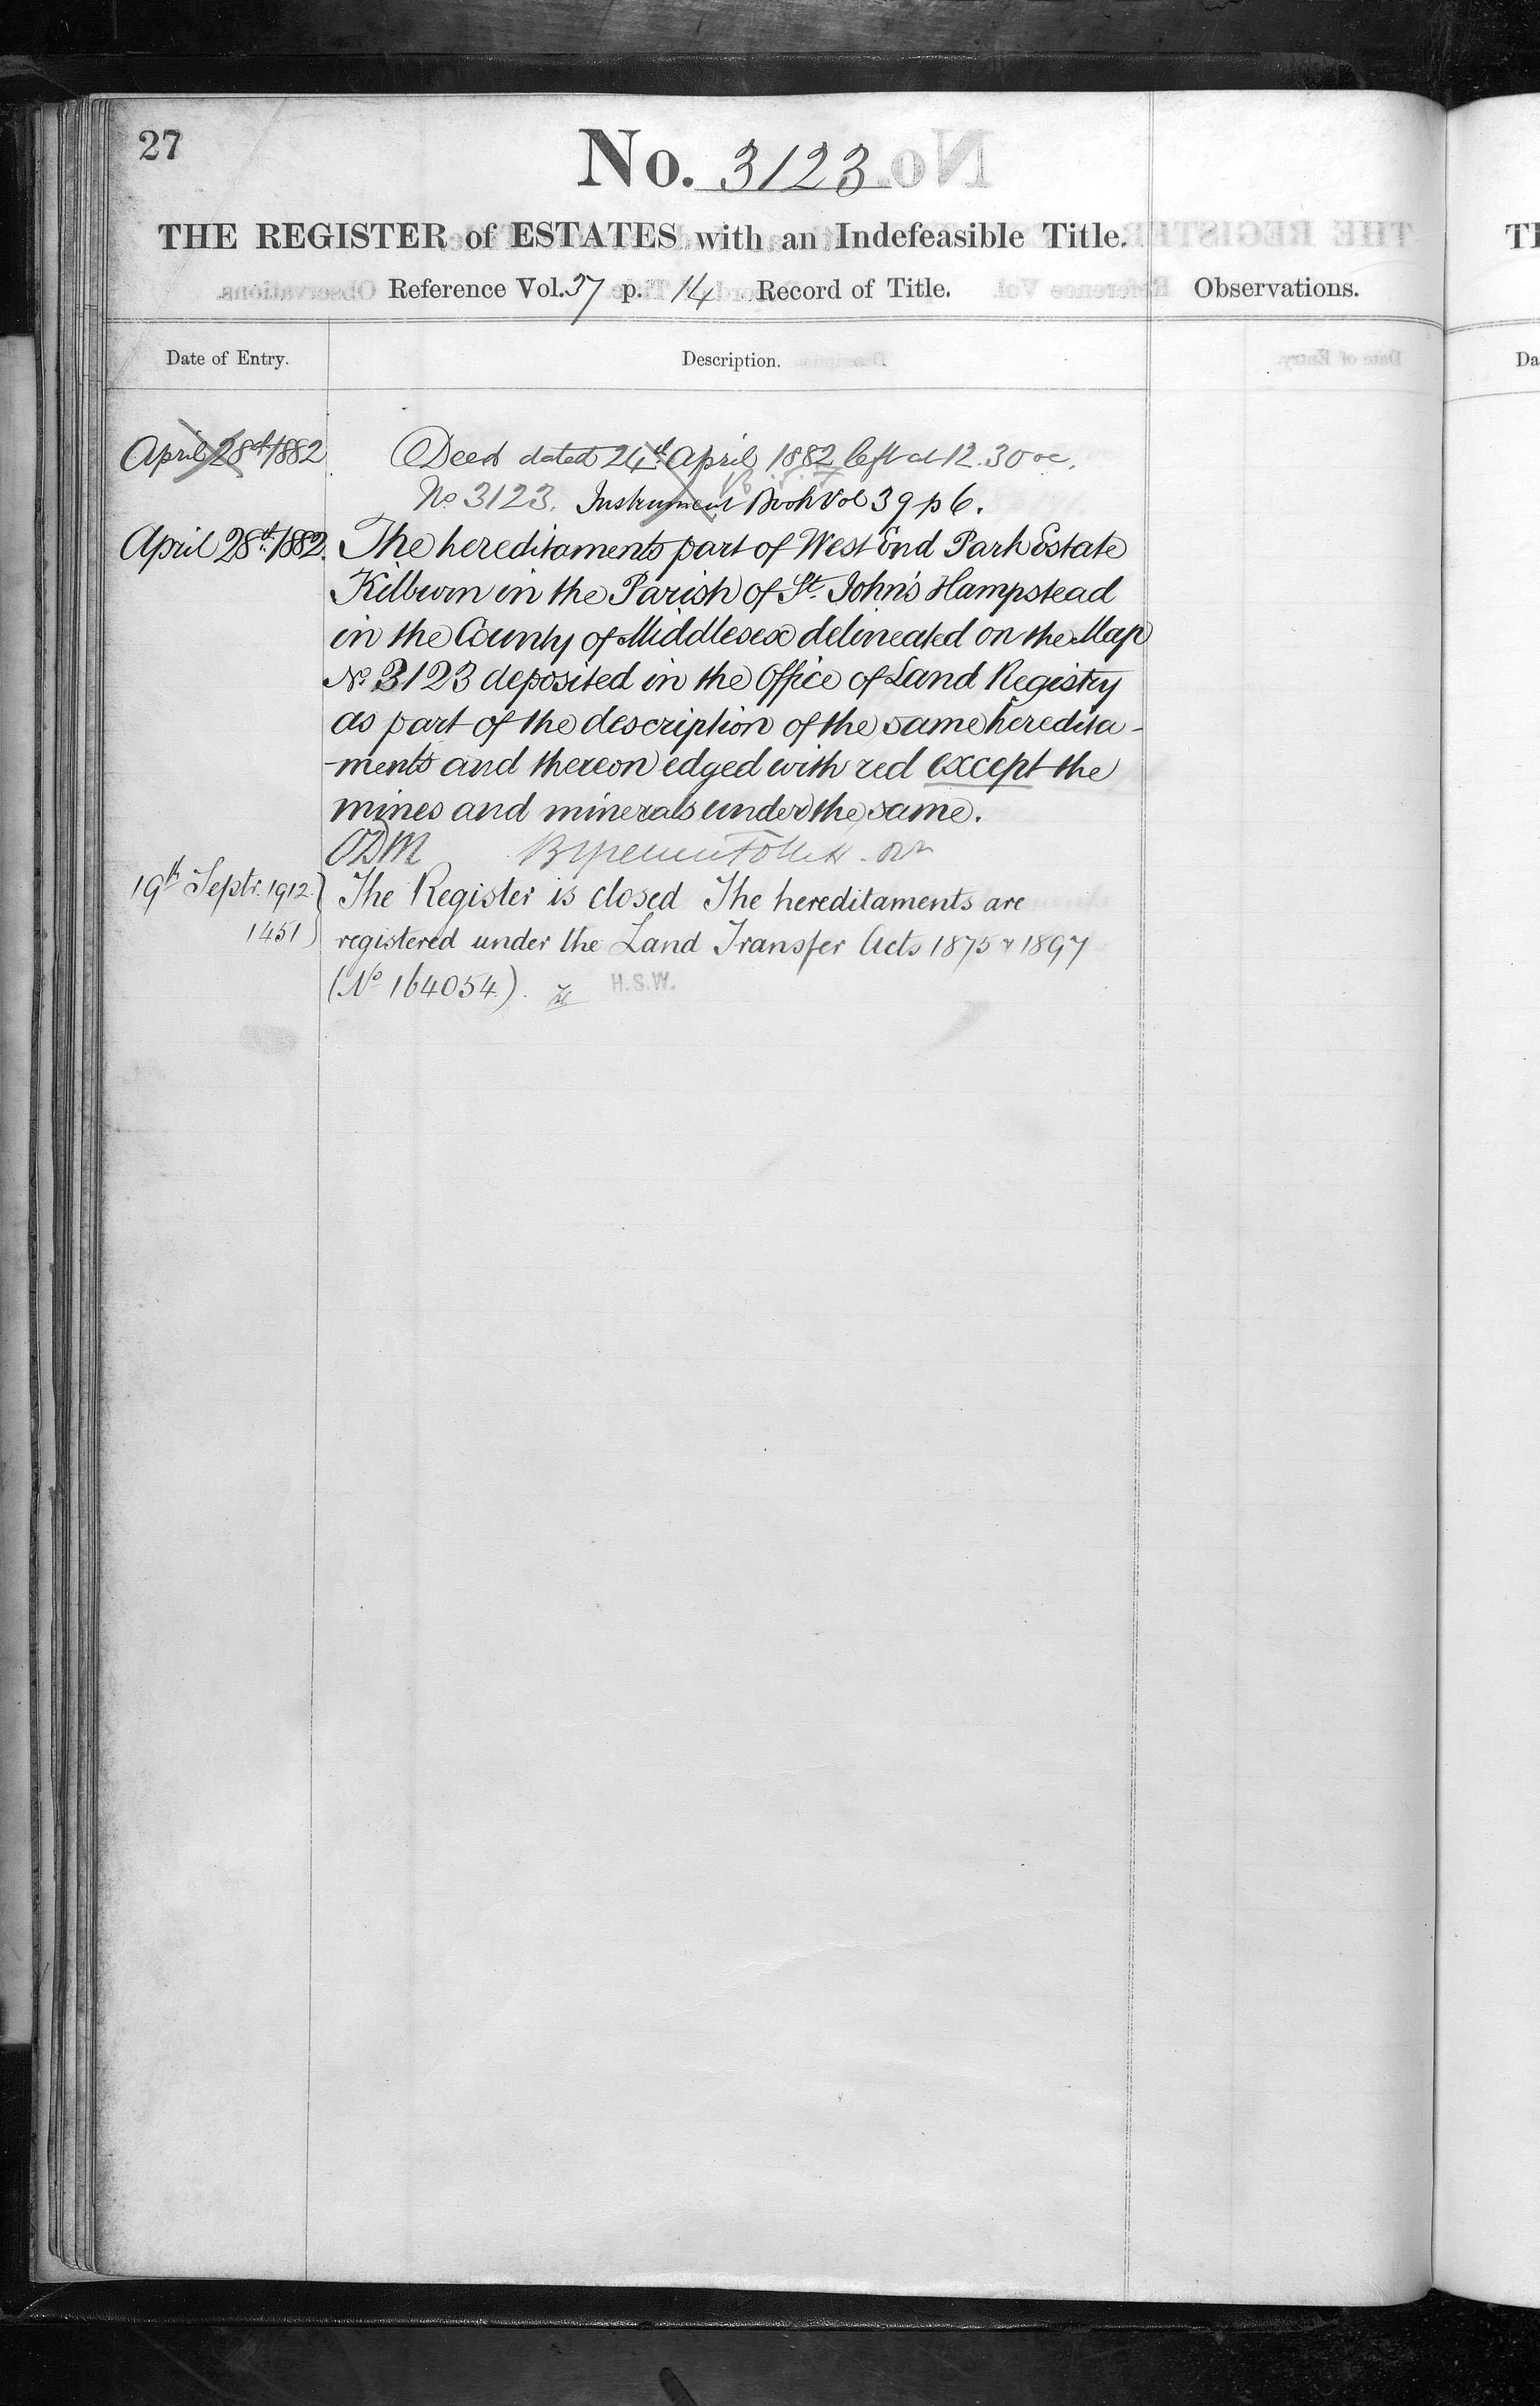 27
No. 3123
THE REGISTER of ESTATES with an Indefeasible Title.
Reference Vol. 37 p. 14 Record of Title.
Observations.
Date of Entry.
Description.
April 28th 1882
Deed dated 24th April 1882 left at 12.30 oc.
No 3123. Instrument Book Vol 39 p 6.
April 28th 1882. The hereditaments part of West End Park Estate
Kilburn in the Parish of St. John's Hampstead
in the County of Middlesex delineated on the Map
No. 3123 deposited in the Office of Land Registry
as part of the description of the same heredita-
-ments and thereon edged with red except the
mines and minerals under the same.
ODM
19th Septr. 1912 The Register is closed The hereditaments are
1451 registered under the Land Transfer Acts 1875 & 1897
(No 164054). H.S.W.